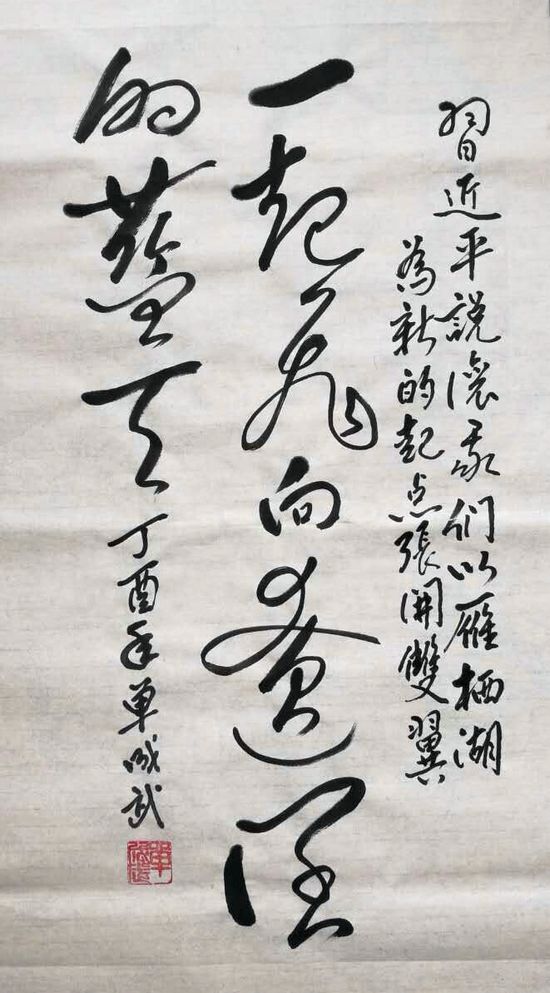 習近平說讓我們以雁栖湖
為新的起点張開雙翼
一起飛向遼闊
的藍天
丁酉年单成武